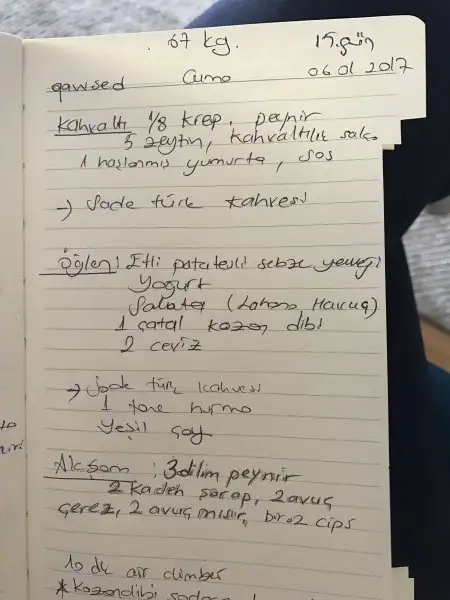 67 kg. 15.gün
qawsed Cuma 06 01 2017
Kahvaltı 1/8 krep, peynir
5 zeytin, kahvaltılık salça
1 haşlanmış yumurta, sos
→ Sade türk kahvesi
Öğlen: Etli patatesli sebze yemeği
Yogurt
Salata (Lahana, Havuç)
1 çatal kazan dibi
2 ceviz
→ Sade türk kahvesi
1 tane hurma
Yeşil çay
Akşam : 3 dilim peynir
2 kadeh şarap, 2 avuç
çerez, 2 avuç mısır, biraz cips
10 dk air climber
* Kazandibi sadece